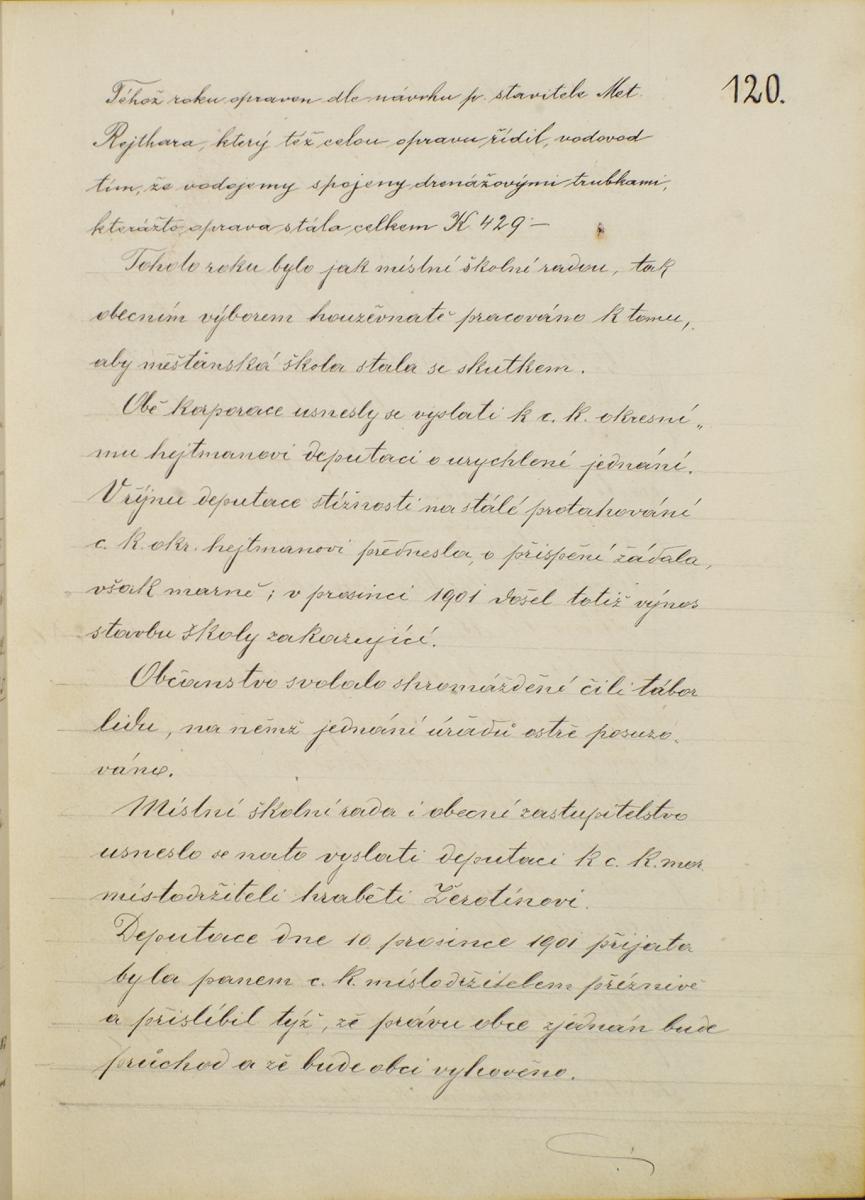 120.
Téhož roku opraven dle návrhu p. stavitele Met.
Rejthara, který též celou opravu řídil, vodovod
tím, že vodojemy spojeny drenážovými trubkami,
kterážto oprava stála celkem K 429·—
Tohoto roku bylo jak místní školní radou, tak
obecním výborem houževnatě pracováno k tomu,
aby měšťanská škola stala se skutkem.
Obě korporace usnesly se vyslati k c. k. okresní„
mu hejtmanovi deputaci o urychlené jednání.
V říjnu deputace stížnosti na stálé protahování
c. k. okr. hejtmanovi přednesla, o přispění žádala,
však marně; v prosinci 1901 došel totiž výnos
stavbu školy zakazující.
Občanstvo svolalo shromáždění čili tábor
lidu, na němž jednání úřadů ostře posuzo-
váno.
Místní školní rada i obecní zastupitelstvo
usneslo se nato vyslati deputaci k c. k. mor.
místodržiteli hraběti Žerotínovi.
Deputace dne 10 prosince 1901 přijata
byla panem c. k. místodržitelem příznivě
a přislíbil týž, že právu obce zjednán bude
průchod a že bude obci vyhověno.